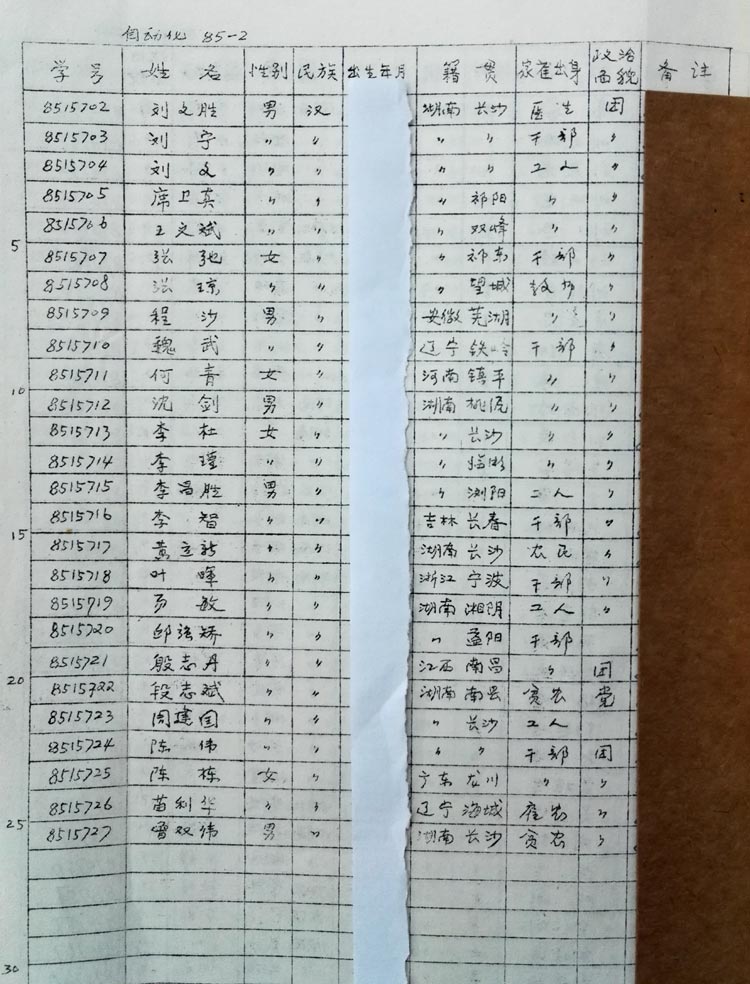 自动化 85-2
学号 姓名 性别 民族 出生年月 籍贯 家庭出身 政治面貌 备注
8515702 刘文胜 男 汉 湖南 长沙 医生 团
8515703 刘宁 〃 〃 〃 〃 干部 〃
8515704 刘文 〃 〃 〃 〃 工人 〃
8515705 席卫真 〃 〃 〃 祁阳 〃 〃
5
8515706 王文斌 〃 〃 〃 双峰 〃 〃
8515707 张艳 女 〃 〃 祁东 干部 〃
8515708 张琼 〃 〃 〃 望城 教师 〃
8515709 程沙 男 〃 安徽 芜湖 〃 〃
8515710 魏武 〃 〃 辽宁 铁岭 干部 〃
10
8515711 何青 女 〃 河南 镇平 〃 〃
8515712 沈剑 男 〃 湖南 桃源 〃 〃
8515713 李杜 女 〃 〃 长沙 〃 〃
8515714 李瑾 〃 〃 〃 〃 〃
8515715 李昌胜 男 〃 〃 浏阳 工人 〃
15
8515716 李智 〃 〃 吉林 长春 干部 〃
8515717 黄立新 〃 〃 湖南 长沙 农民 〃
8515718 叶晖 〃 〃 浙江 宁波 干部 〃
8515719 易敏 〃 〃 湖南 湘阴 工人 〃
8515720 邱 矫 〃 〃 〃 益阳 干部
20
8515721 殷志丹 〃 〃 江西 南昌 〃 团
8515722 段志斌 〃 〃 湖南 南县 贫农 党
8515723 周建国 〃 〃 〃 长沙 工人
8515724 陈伟 〃 〃 〃 〃 干部 团
8515725 陈栋 女 〃 广东 龙川 〃 〃
25
8515726 苗利华 〃 〃 辽宁 海城 雇农 〃
8515727 曾双伟 男 〃 湖南 长沙 贫农 〃
30